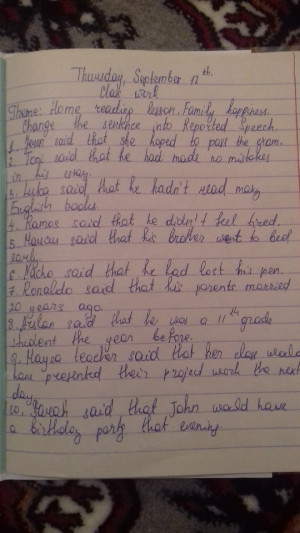 Thursday, September 12th.
Clas work
Theme: Home reading lesson. Family happiness.
Change the sentence into Reported Speech.
1. said that she hoped to pass the exam.
2. Toni said that he had made no mistakes
in his essay.
3. Luka said that he hadn't read many
English books.
4. Ramos said that he didn't feel tired.
5. said that his brother went to bed
early.
6. Nacho said that he had lost his pen.
7. Ronaldo said that his parents married
20 years ago.
8. said that he was a 11th grade
student the year before.
9. teacher said that her class would
have presented their project work the next
day.
10. Sarah said that John would have
a birthday party that evening